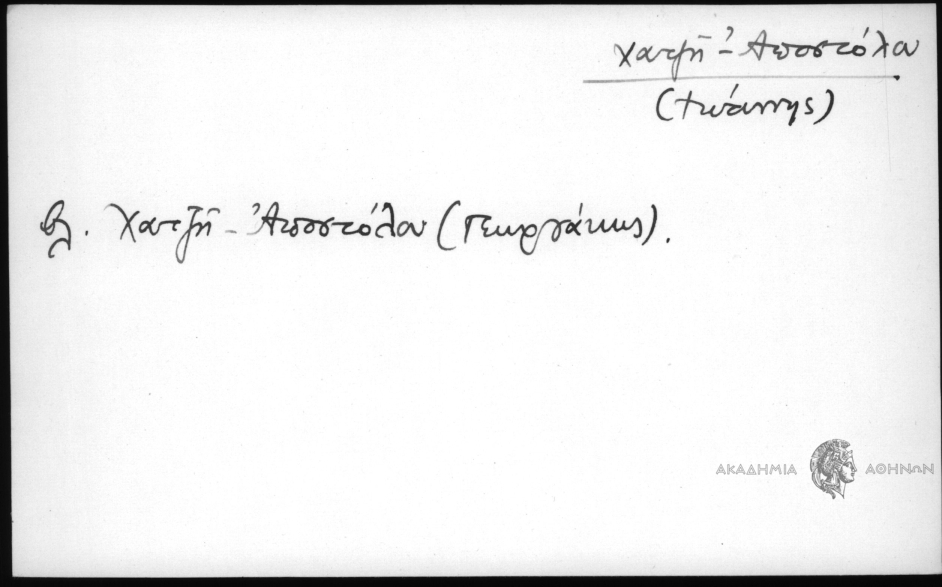 Χατζῆ-Ἀποστόλου
(Ἰωάννης)
βλ. Χατζῆ-Ἀποστόλου (Γεωργάκης).
ΑΚΑΔΗΜΙΑ ΑΘΗΝΩΝ